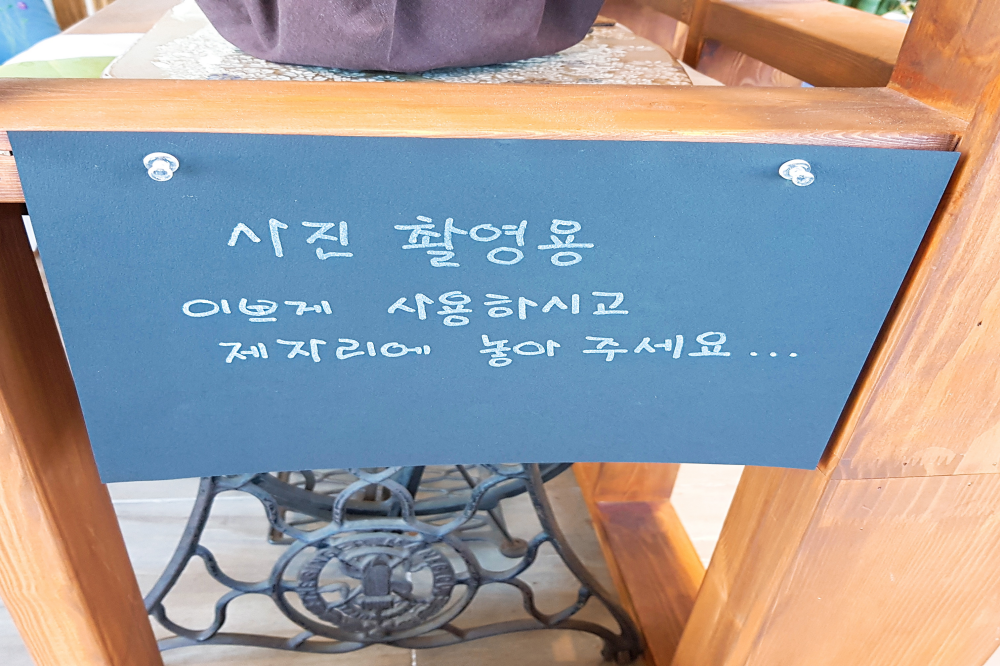 사진 촬영용
이쁘게 사용하시고
제자리에 놓아 주세요...